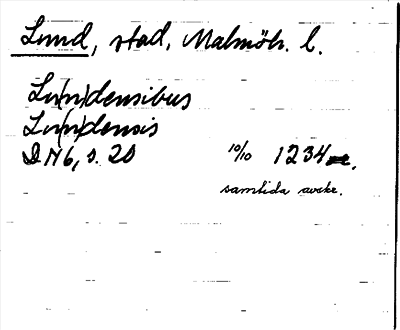 Lund, stad, Malmöh. l.
Lu(n)densibus
Lu(n)densis
DN6, s. 20 10/10 1234
samtida avskr.